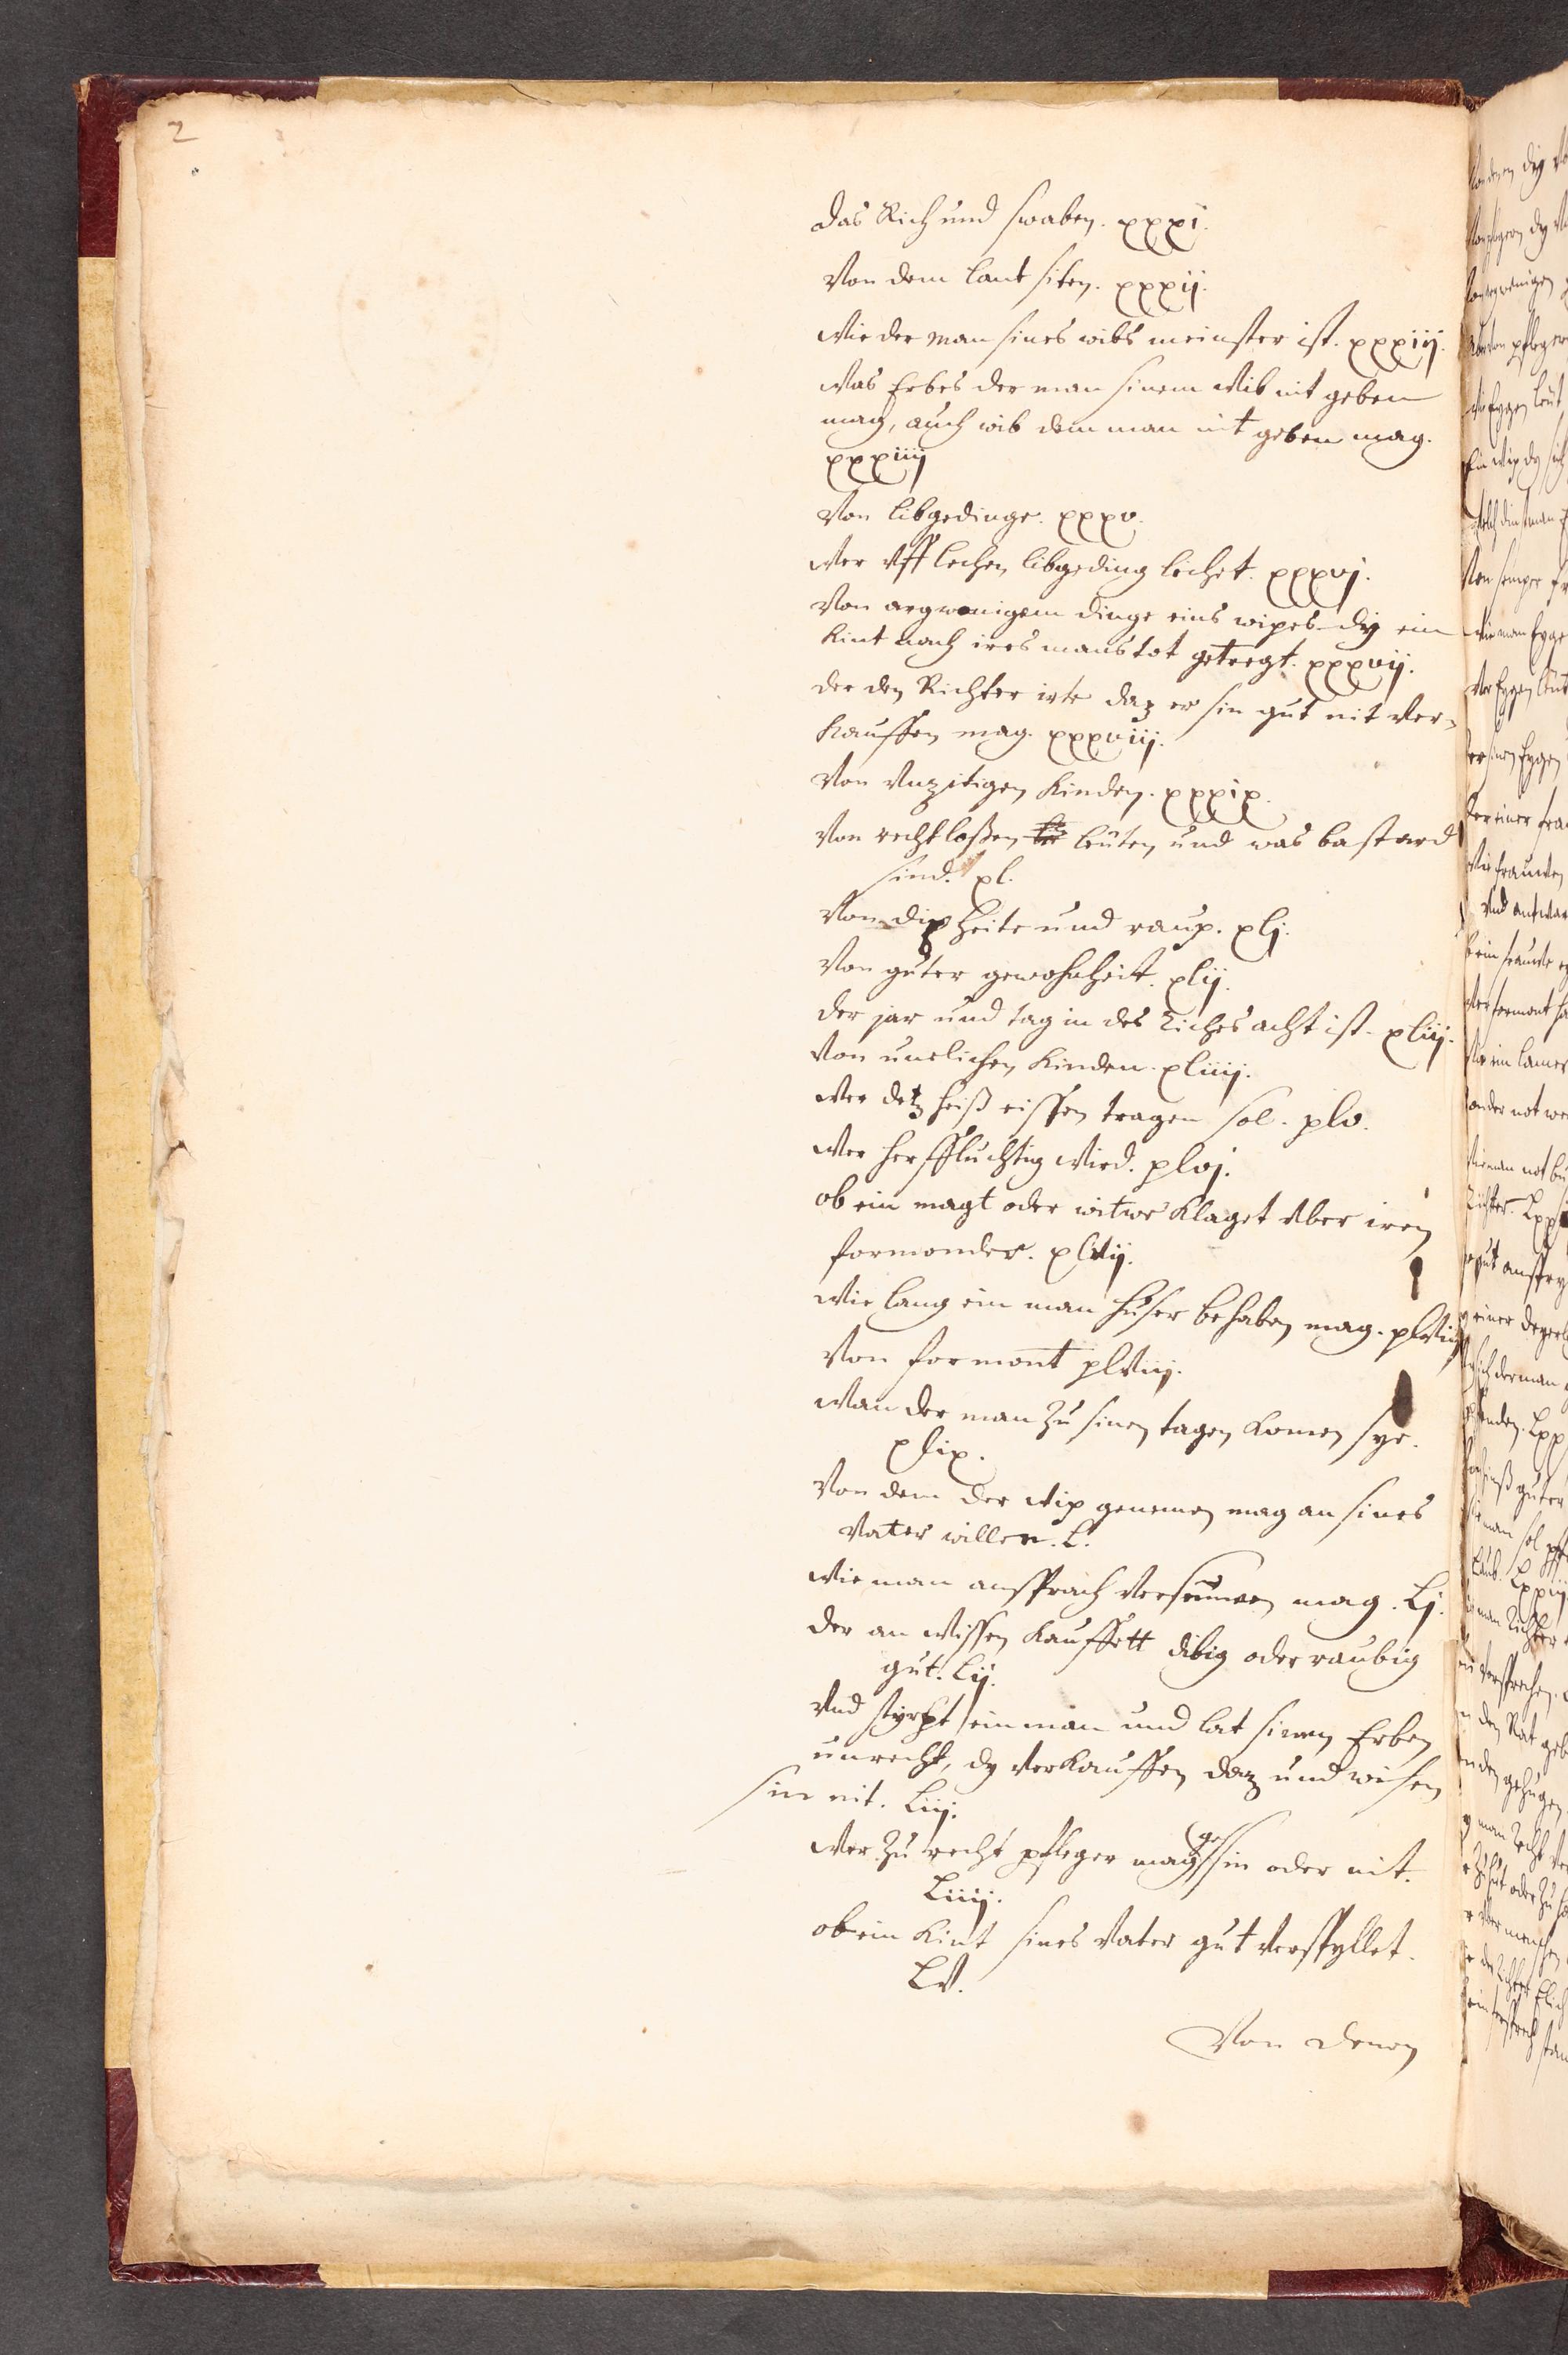 2
das Rich und swaben. xxxi.
Von dem lantsiten. xxxij.
Wie der man sines wibs meinster ist. xxxiij.
Was Erbes der man sinem Wib nit geben
mag, auch wib dem man nit geben mag.
xxxiiij
Von libgedinge. xxxv.
Wer Vff lechen libgeding lichet. xxxvj.
Von argwenigem dinge eins wipes dy ein
Kint nach ires mans tot getregt. xxxvij.
der den Richter irte daz er sin gut nit Ver-
Kauffen mag. xxxviij.
Von Vnzitigen Kinden. xxxix.
Von rechtloßen leuten und was bastard
sind. xl.
Von dipheite und raup. xlj.
Von guter gewohnheit. xlij.
der jar und tag in des Riches acht ist. xliij.
Von unelichen Kinden. xliiij.
Wer detz heiß eissen tragen sol. xlv.
Wer herffluchtig Wird. xlvj.
ob ein magt oder witwe Klaget Vber iren
formonder. xlvij.
Wie lang ein man huser behaben mag. xlviij
Von formont xlviij.
Wan der man zu sinen tagen Komen sye.
xlix.
Von dem der Wip genemen mag an sines
Vater willen. L.
Wie man ansprach Verseumen mag. Lj.
der an Wissen Kauffett dibig oder raubig
gut. Lij.
Vnd styrpt ein man und lat sinen Erben
unrecht, dy Verkauffen daz und wisen
sin nit. Liij.
Wer zu recht pfleger mag ges sin oder nit.
Liiij.
ob ein Kint sines Vater gut Verspyllet.
LV.
Von denen